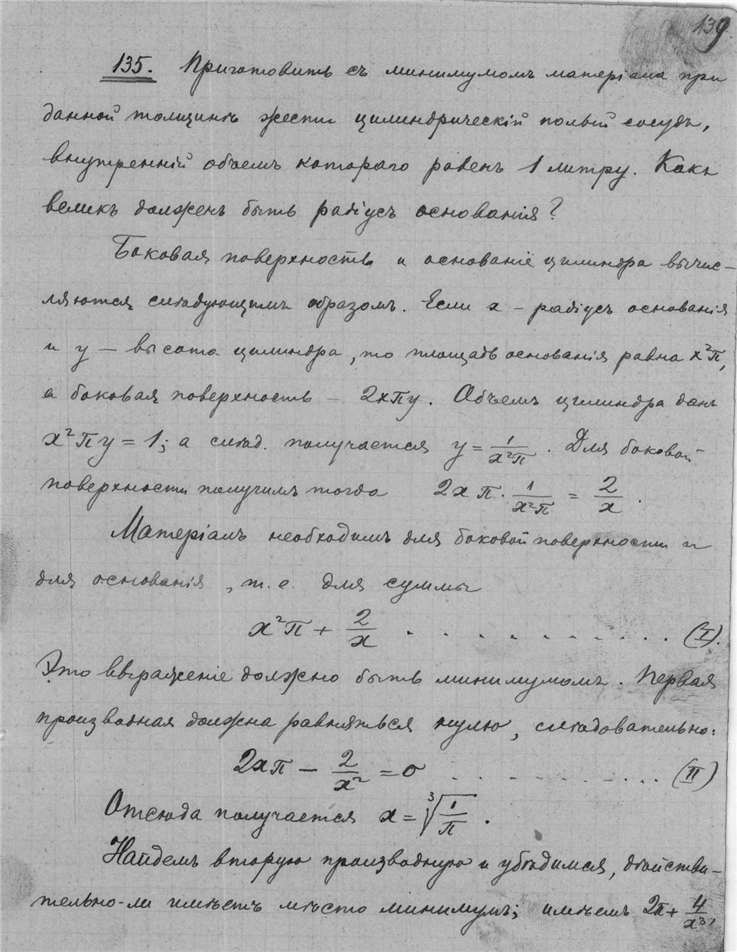 139.
135. Приготовить съ минимумомъ матеріала при
данной толщинѣ жести цилиндрическій полый сосудъ,
внутренній объемъ котораго равенъ 1 литру. Какъ
великъ долженъ быть радіусъ основанія?
Боковая поверхность и основаніе цилиндра вычис-
ляются слѣдующимъ образомъ. Если x - радіусъ основанія
и y - высота цилиндра, то площадь основанія равна x²π,
а боковая поверхность - 2xπy. Объемъ цилиндра данъ
x²πy = 1; а слѣд. получается y = 1/x²π. Для боковой
поверхности получимъ тогда 2xπ · 1/x²π = 2/x.
Матеріалъ необходимъ для боковой поверхности и
для основанія, т. е. для суммы
x²π + 2/x . . . . . . . . . . . (I).
Это выраженіе должно быть минимумомъ. Первая
производная должна равняться нулю, слѣдовательно:
2xπ - 2/x² = 0 . . . . . . . . . . (II)
Отсюда получается x = ∛(1/π).
Найдемъ вторую производную и убѣдимся, дѣйстви-
тельно-ли имѣетъ мѣсто минимумъ; имѣемъ 2π + 4/x³,